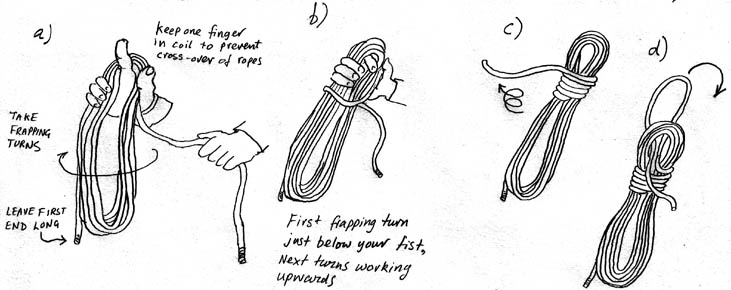 a)
keep one finger
in coil to prevent
cross-over of ropes
TAKE
FRAPPING
TURNS
LEAVE FIRST
END LONG
b)
First flapping turn
just below your fist,
Next turns working
upwards
c)
d)